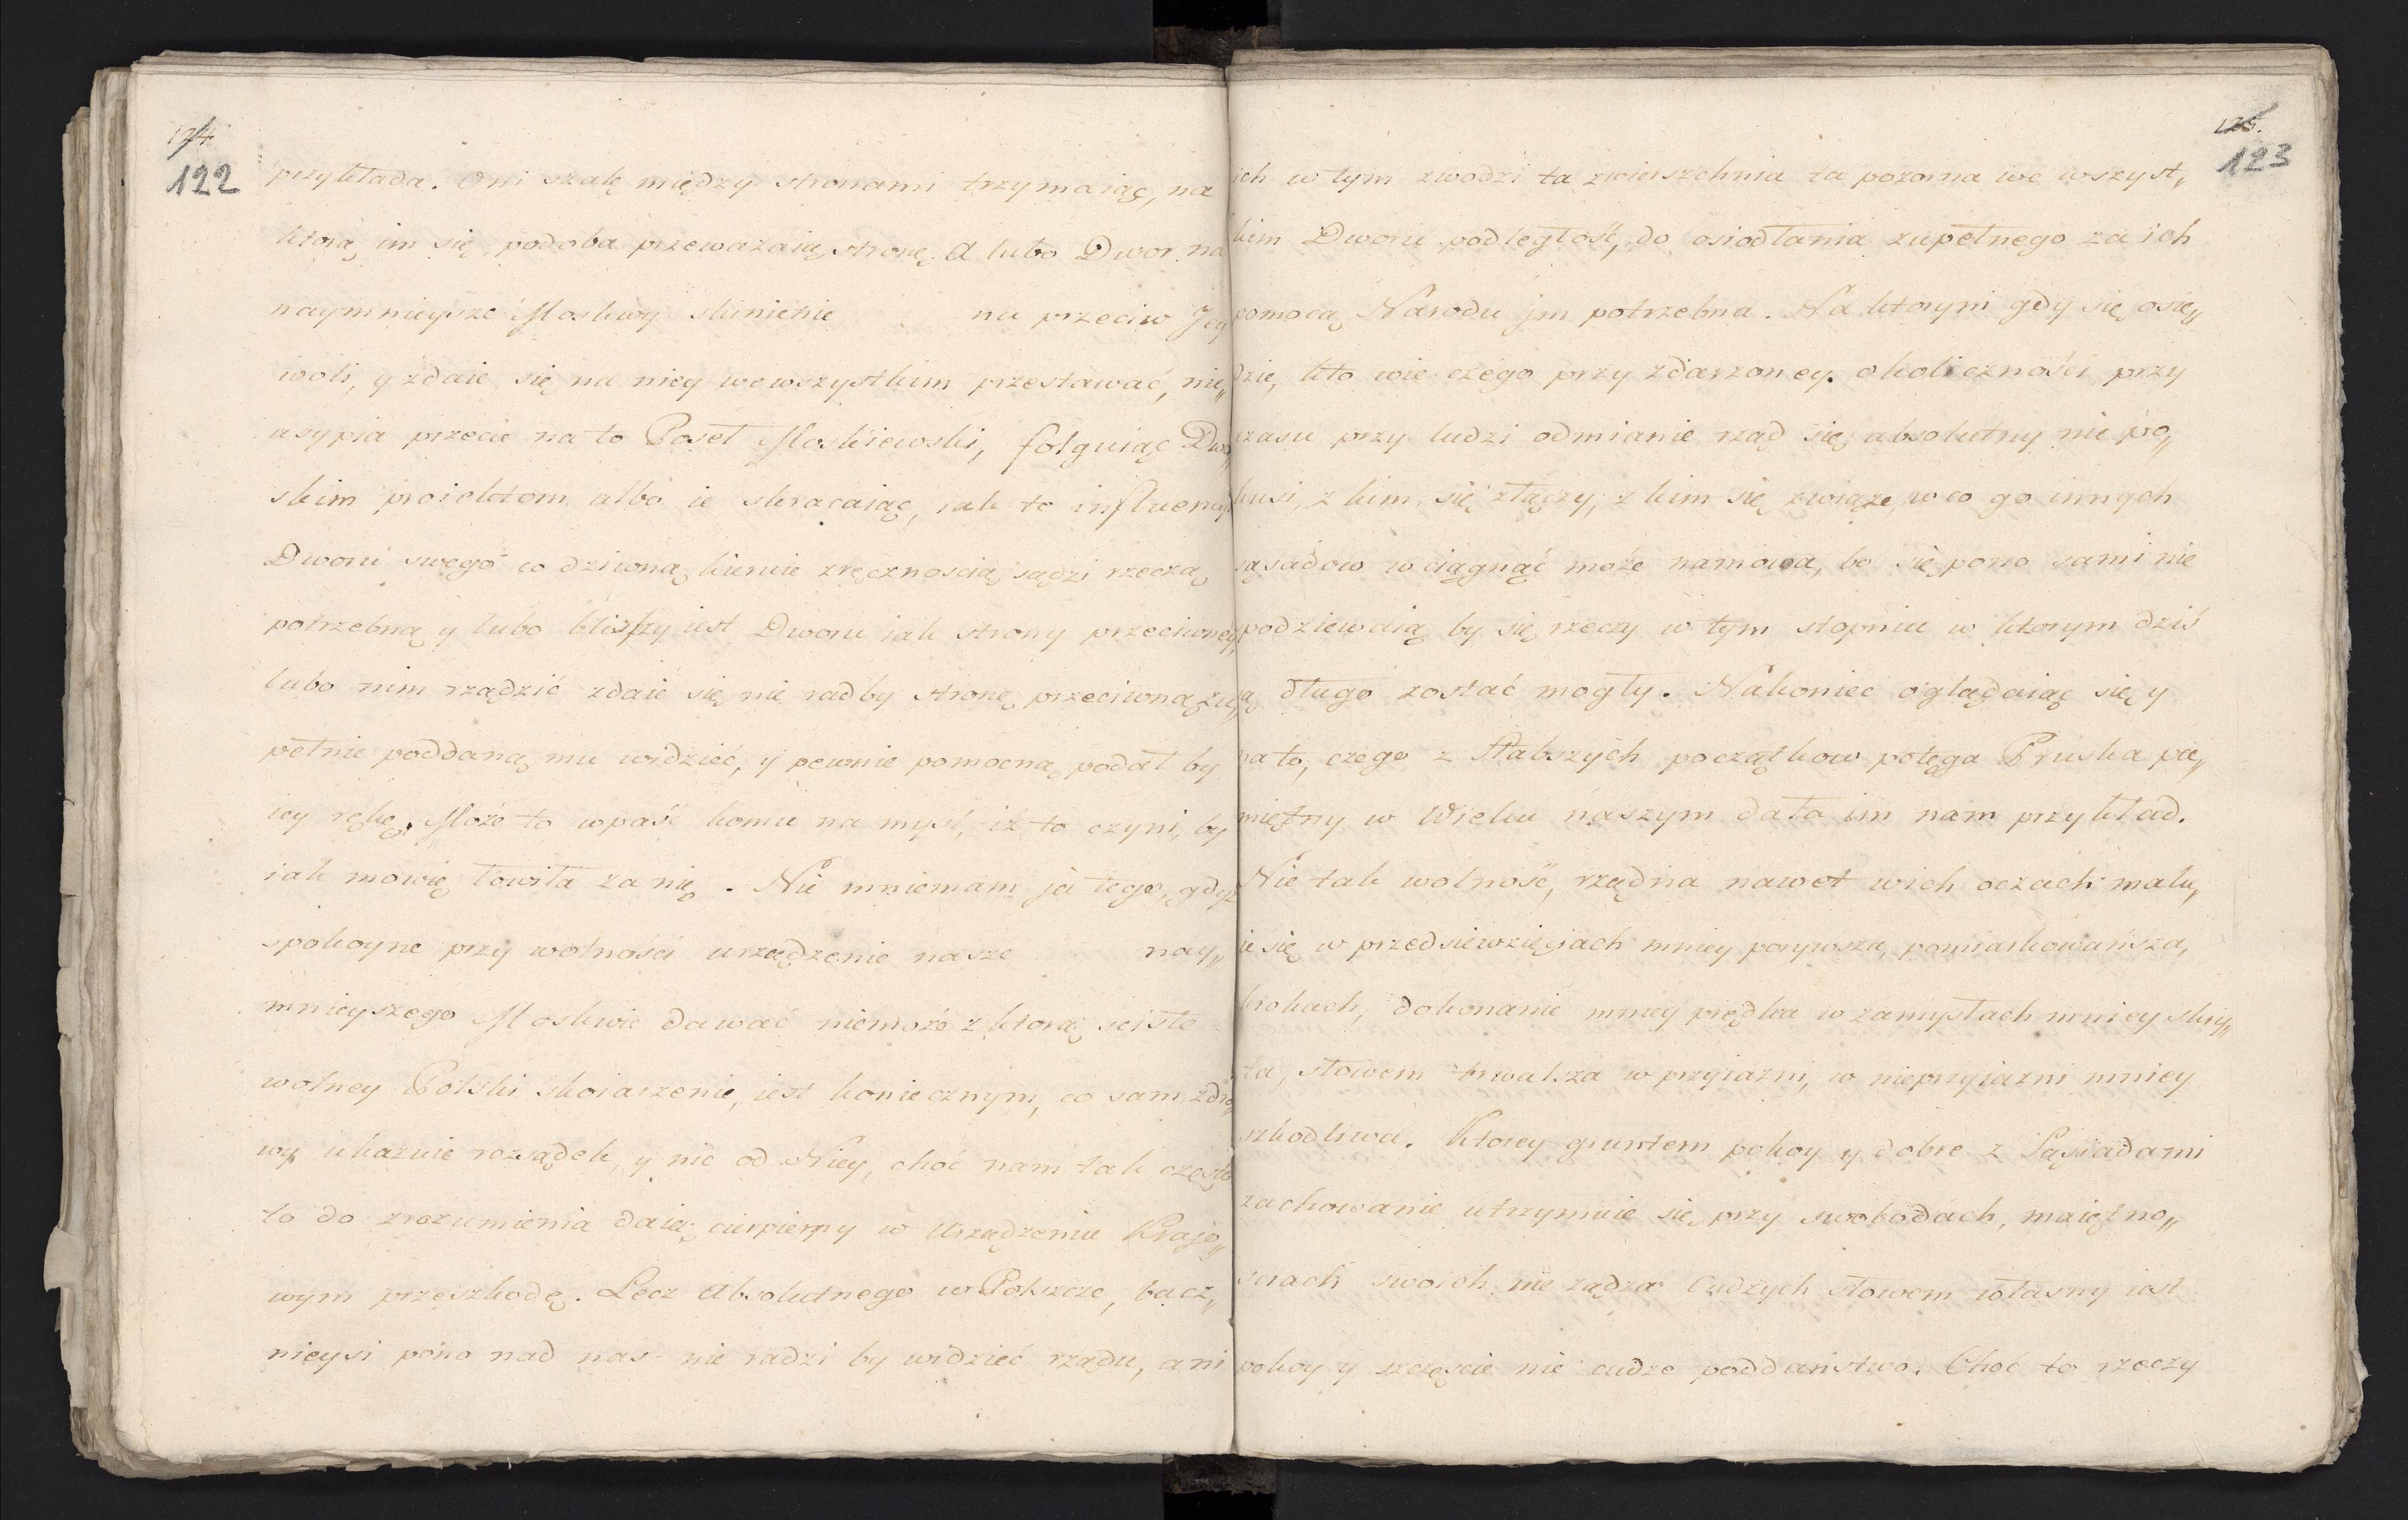 174.
122
przykłada. Oni szalę między stronami trzymaiąc, na
ktorą im się podoba przeważaią stronę. A lubo Dwor na
naymnieysze Moskwy skinienie na przeciw Jey
woli, y zdaie się na niey wewszystkim przestawać, nie„
usypia przecie na to Poseł Moskiewski, folguiąc Dwo„
skim proiektom albo ie skracaiąc, iak to influency
Dworu swego co dziwną kieruie zręcznoscią sądzi rzeczą
potrzebną y lubo bliszy iest Dworu iak strony przeciwney,
lubo nim rządzić zdaie się nie radby stronę przeciwną zu„
pełnie poddaną mu widzieć, y pewnie pomocną podał by
iey rękę. Może to wpaść komu na mysl, iż to czyni, by
iak mowię łowiła za nię. Nie mniemam ja tego, gdyż
spokoyne przy wolności urządzenie nasze nay„
mnieyszego Moskwie dawać niemoże z ktorą sciste
wolney Polski skoiarzenie, iest koniecznym, co sam zdro„
wy ukazuie rozsądek, y nie od Niey, choć nam tak często
to do zrozumienia daią cierpiemy w Urządzeniu Krajo„
wym przeszkodę. Lecz Absolutnego w Polszcze, bacz„
nieysi pono nad nas nie radzi by widzieć rządu, ani
125.
123
ich w tym zwodzi ta zwierszchnia ta pozorna we wszyst„
kim Dworu podległość, do osiodłania zupełnego za ich
pomocą Narodu jm potrzebna. Na ktorym gdy się osię„
dzie, kto wie czego przy zdarzoney okoliczności przy
czasu przy ludzi odmianie rząd się absolutny nie po„
kusi, z kim się złączy, z kim się zwiąże, w co go innych
sąsiadow wciągnąć może namowa, bo się pono sami nie
podziewaią by się rzeczy w tym stopniu w ktorym dziś
są długo zostać mogły. Nakoniec oglądaiąc się y
na to, czego z słabszych początkow potęga Pruska pa„
miętny w Wieku naszym dała im nam przykład.
Nie tak wolność, rządna nawet wich oczach malu„
ie się w przedsiewzięciach mniey porywsza, pomiarkowańsza,
krokach, dokonanie mniey prędka w zamysłach mniey skry„
ta, słowem trwalsza w przyiazni, w nieprzyiazni mniey
szkodliwa. Ktorey gruntem pokoy y dobre z Sąsiadami
zachowanie utrzymuie się przy swobodach, maiętno„
sciach swoich, nie żądza Cudzych słowem własny iest
pokoy y szczęscie nie cudze poddaństwo. Choć to rzeczy